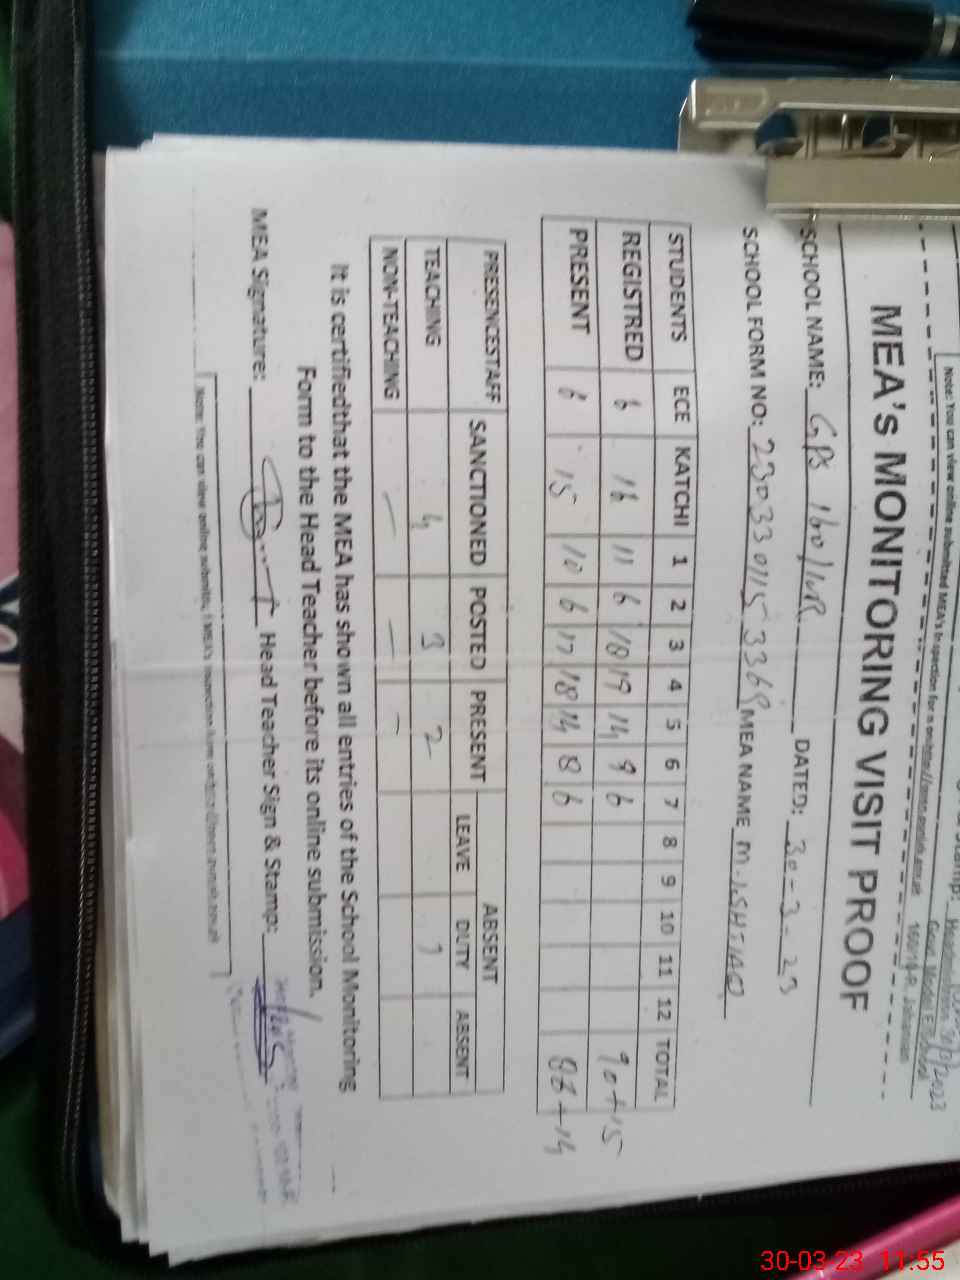 Note: You can view online submitted MEA's Inspection form on
Govt. Model E/School
MEA'S MONITORING VISIT PROOF
SCHOOL NAME: GPS 160/10R DATED: 30-3-23
SCHOOL FORM NO: 23033011533 69 MEA NAME M-ISHTIAQ
STUDENTS ECE KATCHI 1 2 3 4 5 6 7 8 9 10 11 12 TOTAL
REGISTRED 6 16 11 6 18 19 14 9 6 90+15
PRESENT 6 15 10 6 17 18 14 8 6 86+14
PRESENCESTAFF SANCTIONED POSTED PRESENT ABSENT
LEAVE DUTY ABSENT
TEACHING 4 3 2 1
NON-TEACHING — — —
It is certifiedthat the MEA has shown all entries of the School Monitoring
Form to the Head Teacher before its online submission.
MEA Signature: Head Teacher Sign & Stamp:
Note: You can view online
30-03-23 11:55